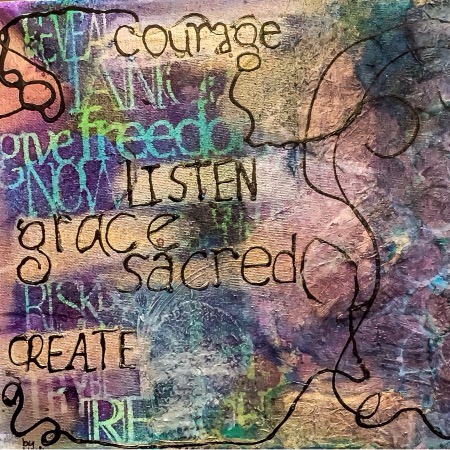 REVEAL courage
give freedo
NOW LISTEN
grace
sacred
RISK
CREATE
by